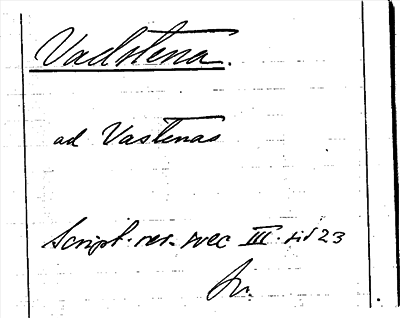 Vadstena.
ad Vastenas
Script. rer. svec III. sid 23